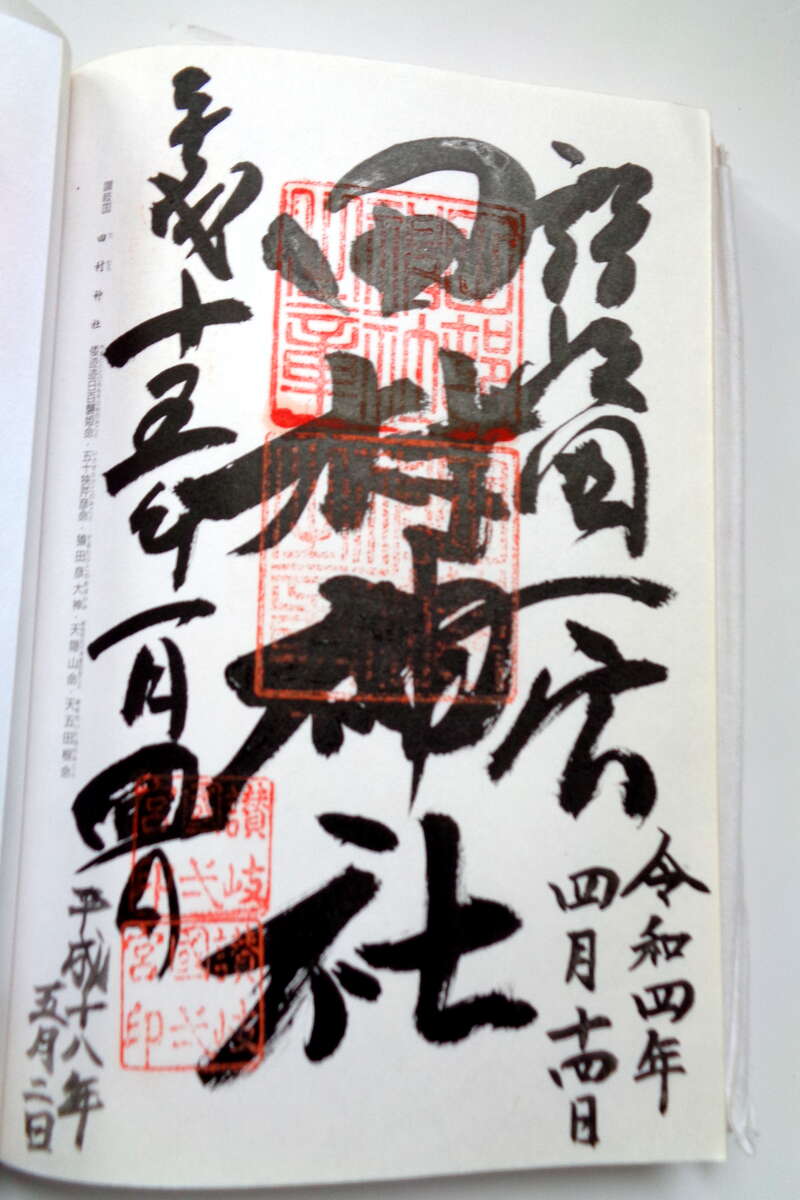 讃岐国一宮
令和四年
四月十四日
田村神社
平成十五年一月四日
讚岐
國弌
宮印
讚岐
國弌
宮印
平成十八年
五月二日
讃岐国 田村神社 倭迹迹日百襲姫命・五十狭芹彦命・猿田彦大神・天隠山命・天五田根命